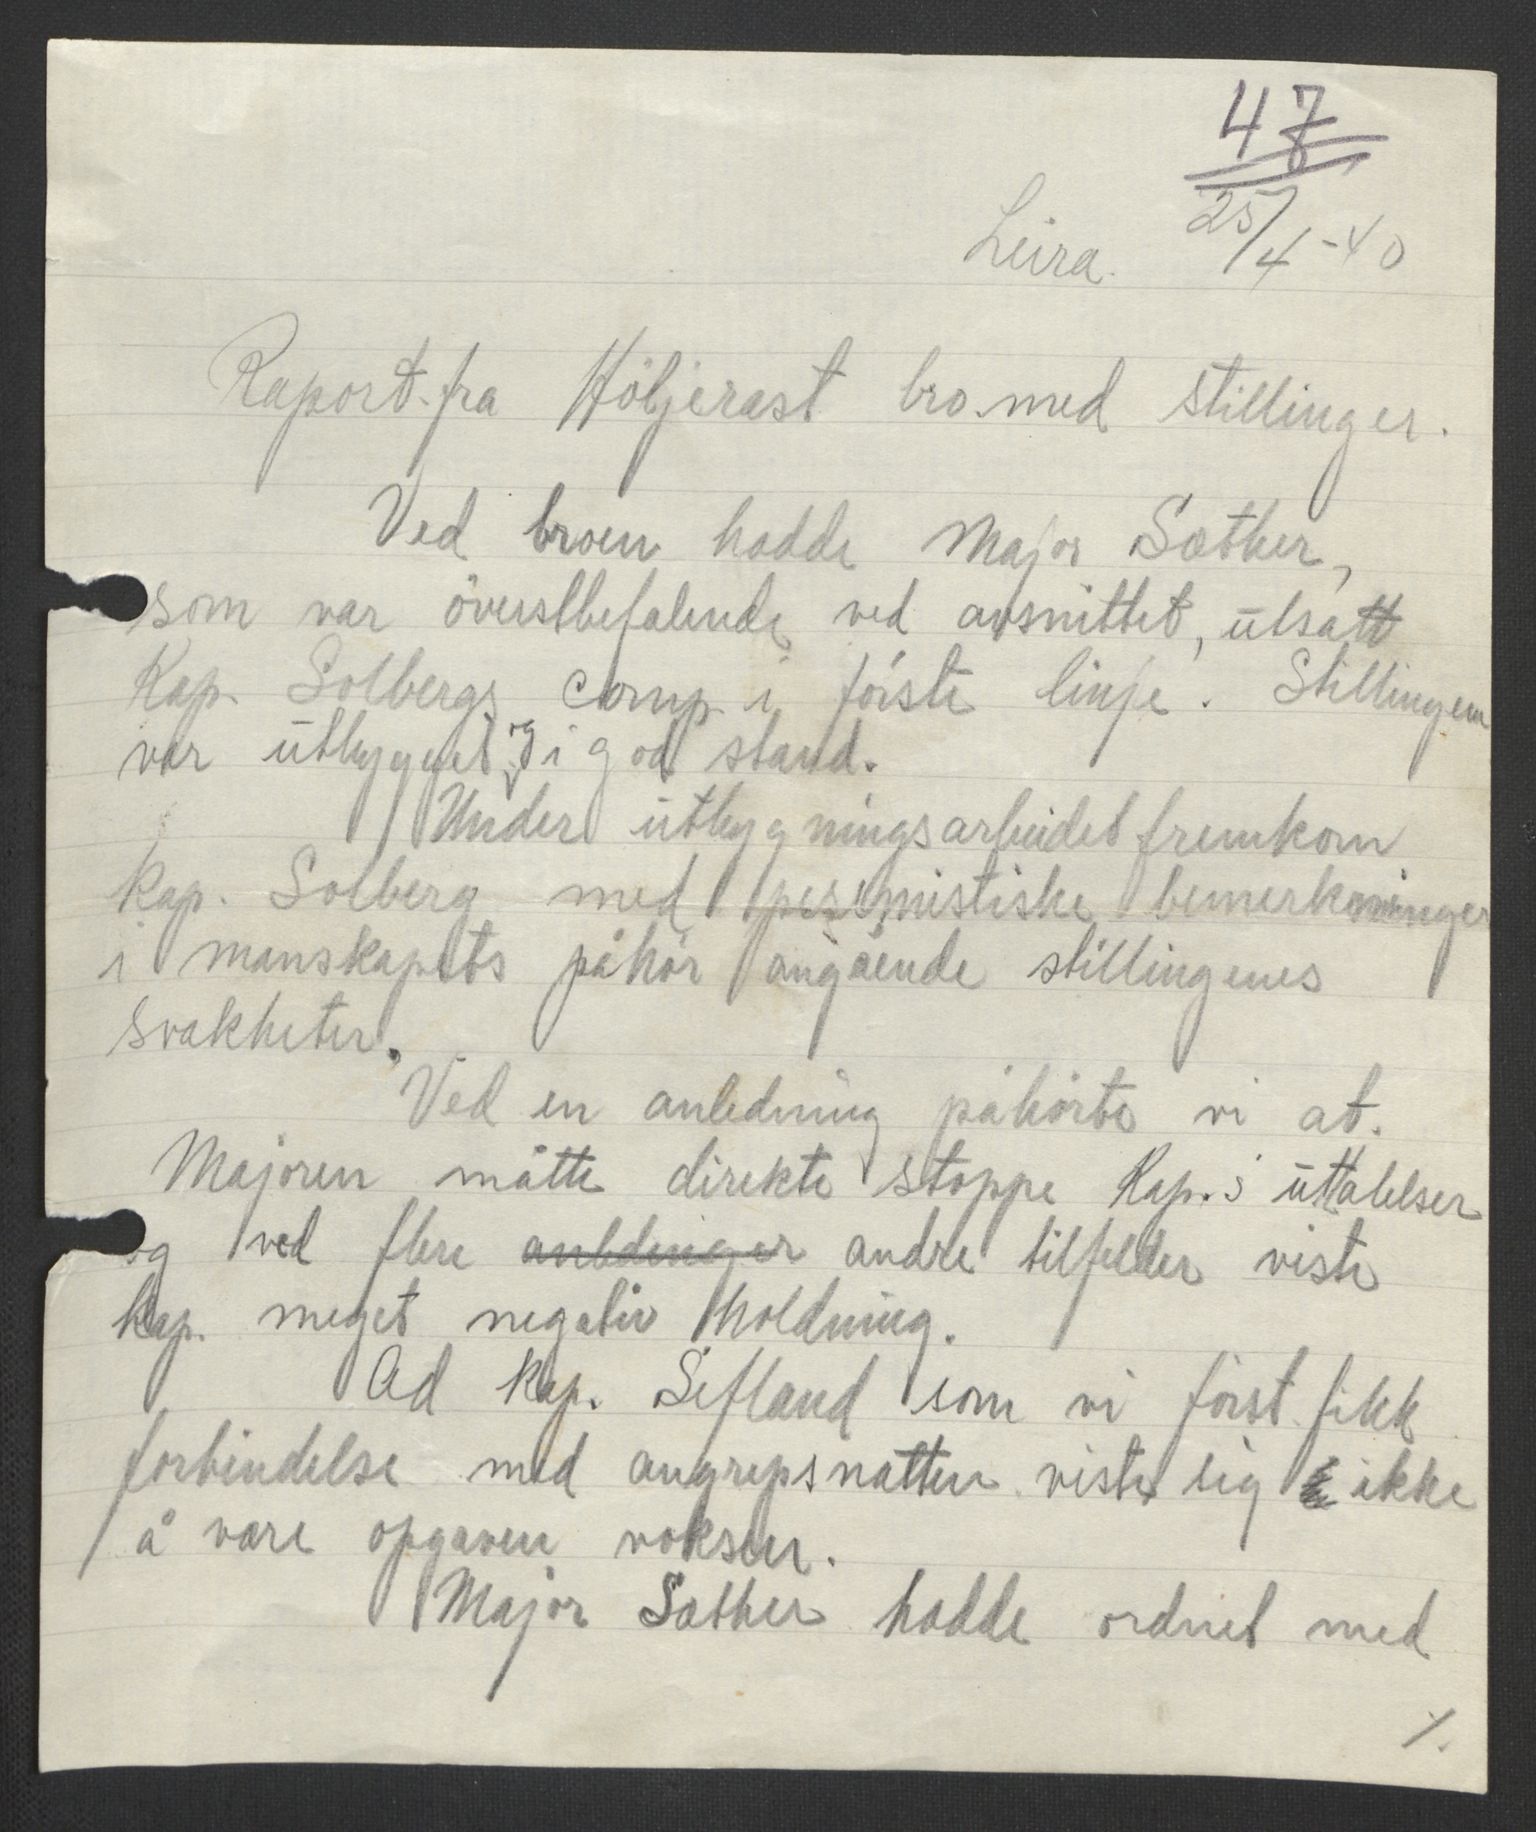 47
Leira. 25/4-40
Raport fra Höljerast bro med stillinger.
Ved broen hadde Major Sæther,
som var överstbefalende ved avsnittet, utsatt
Kap. Solbergs Comp. i förste linje. Stillingen
var utbygget og i god stand.
Under utbygningsarbeidet fremkom
Kap. Solberg med pesimistiske bemerkninger
i manskapets påhör angående stillingenes
svakheter.
Ved en anledning påhörte vi at
Majoren måtte direkte stoppe Kap.s uttalelser
og ved flere anledninger andre tilfeller viste
Kap. meget negativ holdning.
Ad Kap. Sefland som vi först fikk
forbindelse med angrepsnatten viste sig ikke
å være opgaven voksen.
Major Sæther hadde ordnet med
./.